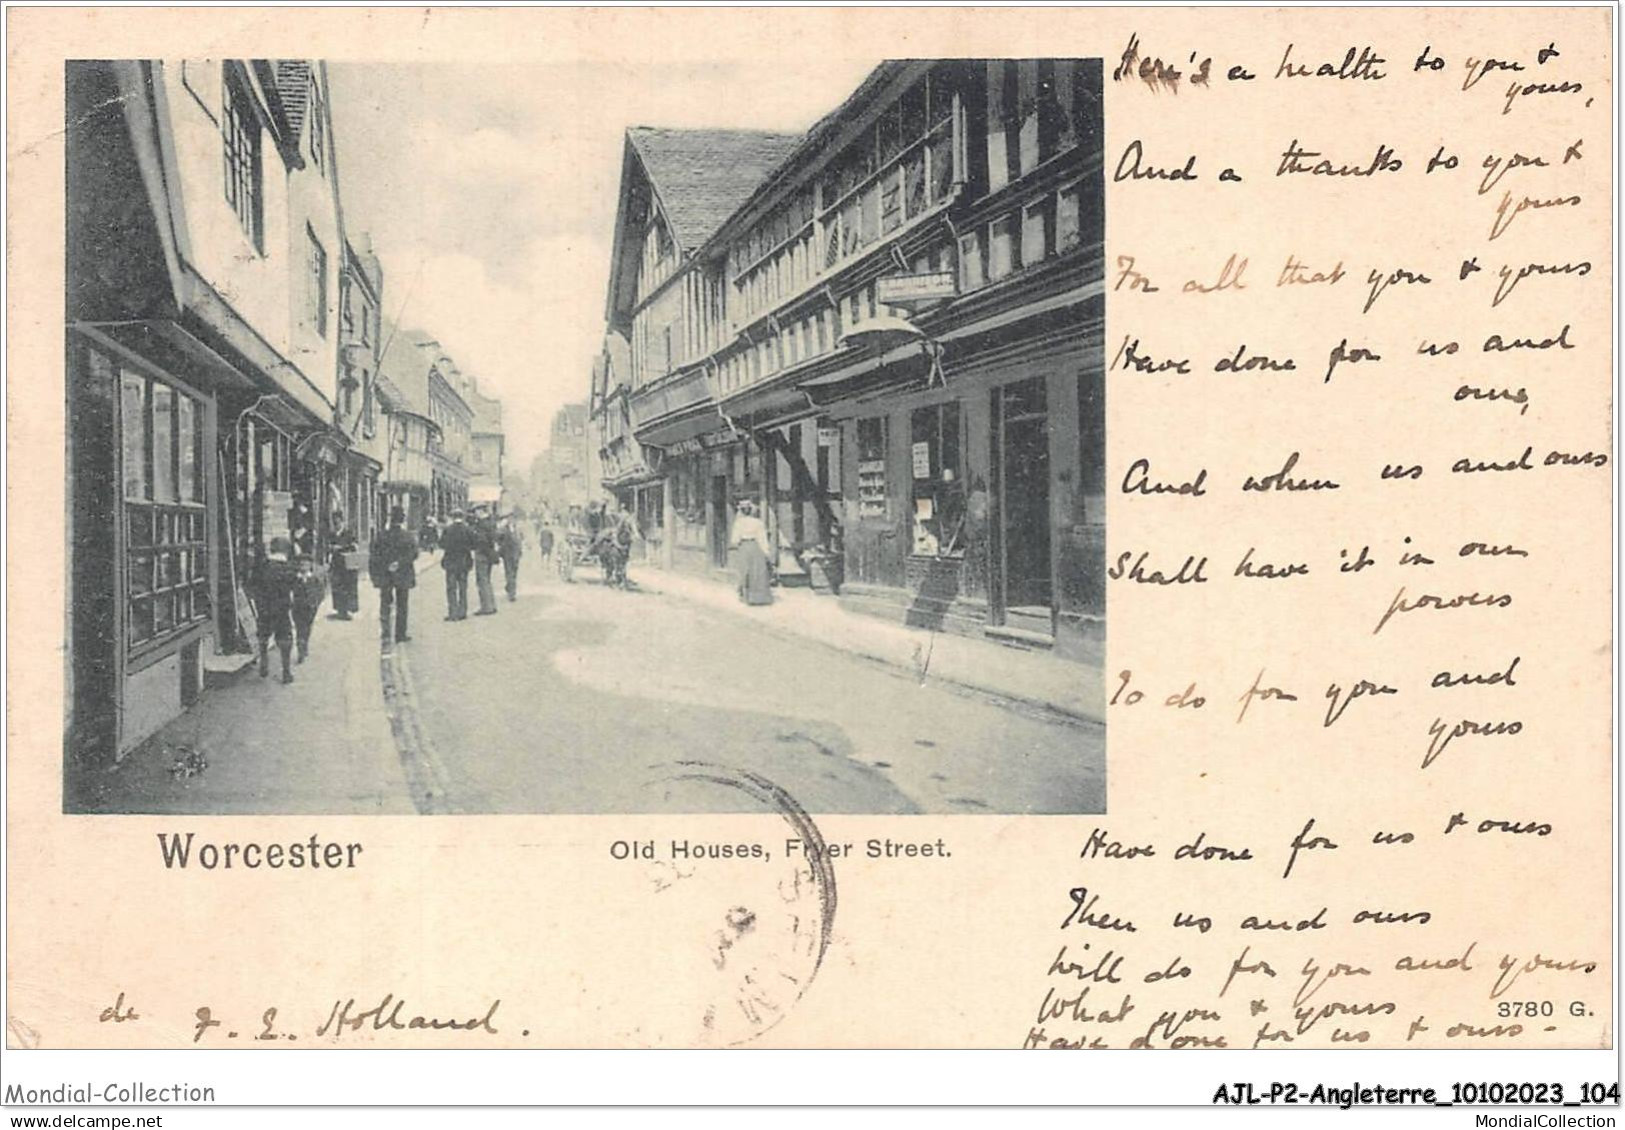 Here's a health to you &
yours,
And a thanks to you &
yours
For all that you & yours
Have done for us and
ours,
And when us and ours
Shall have it in our
powers
To do for you and
yours
Have done for us & ours
Then us and ours
Will do for you and yours
What you & yours
Have done for us & ours -
Worcester
Old Houses, Fryer Street.
de F. E. Holland.
3780 G.
Mondial-Collection
AJL-P2-Angleterre_10102023_104
Mondial-Collection.net
MondialCollection